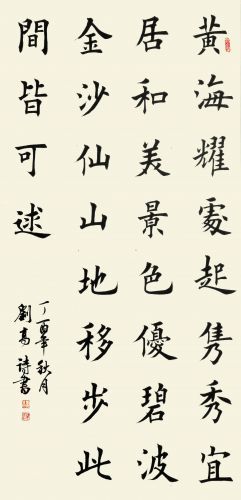 黄海耀處起隽秀宜
居和美景色優碧波
金沙仙山地移步此
間皆可逑
丁酉年秋月
劉高詩書